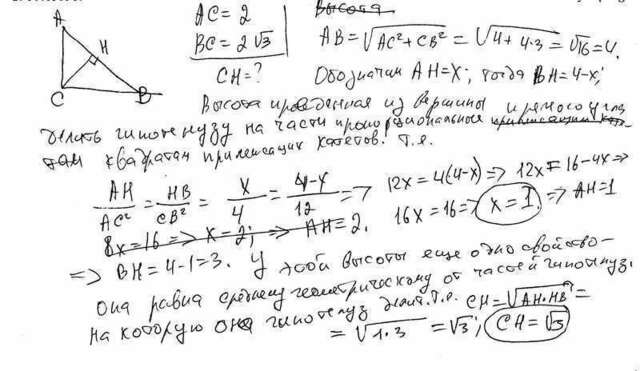 A
H
C
B
AC = 2
BC = 2√3
CH = ?
Высота
AB = √AC² + CB² = √4 + 4·3 = √16 = 4.
Обозначим AH = X; тогда BH = 4-x;
Высота проведенная из вершины прямого угла
делит гипотенузу на части пропорциональные
квадратам прилежащих катетов. Т.е.
AH/AC² = HB/CB² = X/4 = 4-x/12 => 12x = 4(4-x) => 12x = 16-4x =>
16x = 16 => x = 1. => AH = 1
8x = 16 => x = 2; => AH = 2.
=> BH = 4-1 = 3. У этой высоты еще одно свойство -
Она равна среднему геометрическому от частей гипотенуз.
на которую она гипотенуз делит. Т.е. CH = √AH·HB =
= √1·3 = √3; CH = √3